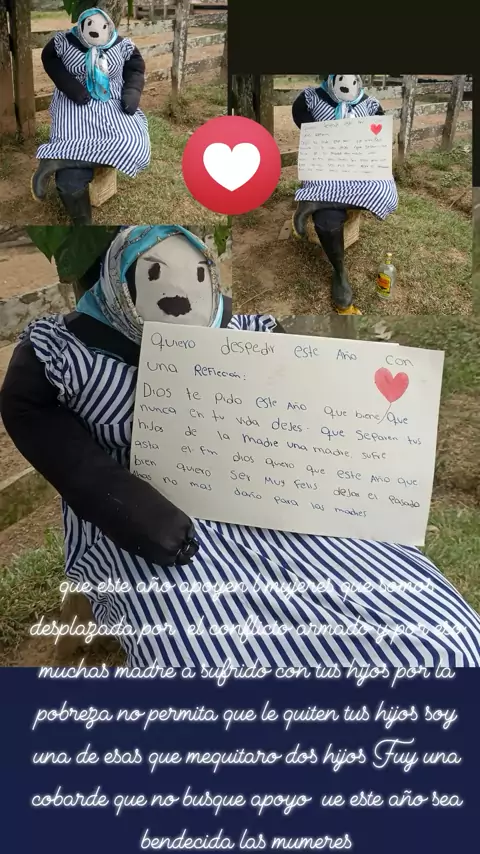 Quiero despedir este Año con
una Reflecion:
Dios te pido este Año que biene que
nunca en tu vida dejes que separen tus
hijos de la madre una madre sufre
asta el fin dios quero que este Año que
bien quiero ser muy felis dejar el pasado
no mas daño para las madres
que este año apoyen l mujeres que somos
desplazada por el conflicto armado y por eso
muchas madre a sufrido con tus hijos por la
pobreza no permita que le quiten tus hijos soy
una de esas que mequitaro dos hijos Fuy una
cobarde que no busque apoyo ue este año sea
bendecida las mumeres